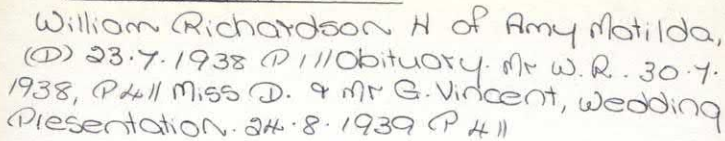 William Richardson H of Amy Matilda,
(D) 23.7.1938 P1// Obituary. Mr W.R. 30.7.
1938, P4// Miss D. & Mr G. Vincent, Wedding
Presentation. 24.8.1939 P4//